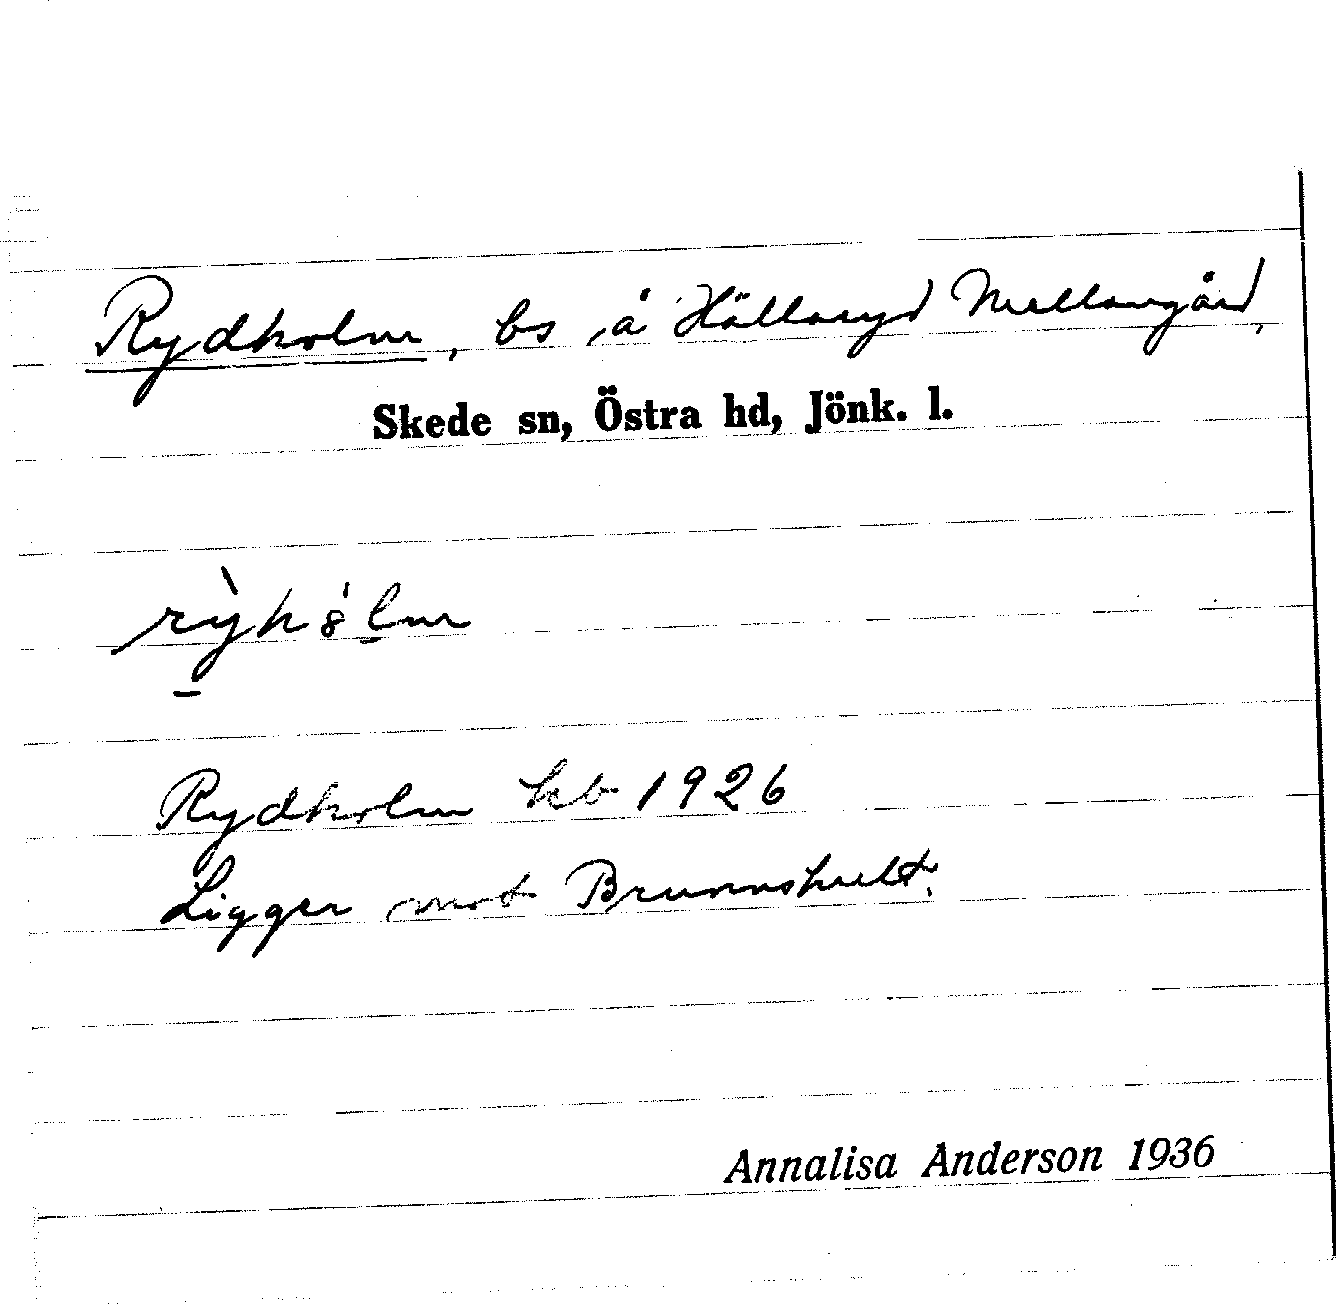 Rydholm, bs å Hällaryd Mellangård,
Skede sn, Östra hd, Jönk. l.
Rydholm kb 1926
Ligger mot Brunnshult.
Annalisa Anderson 1936